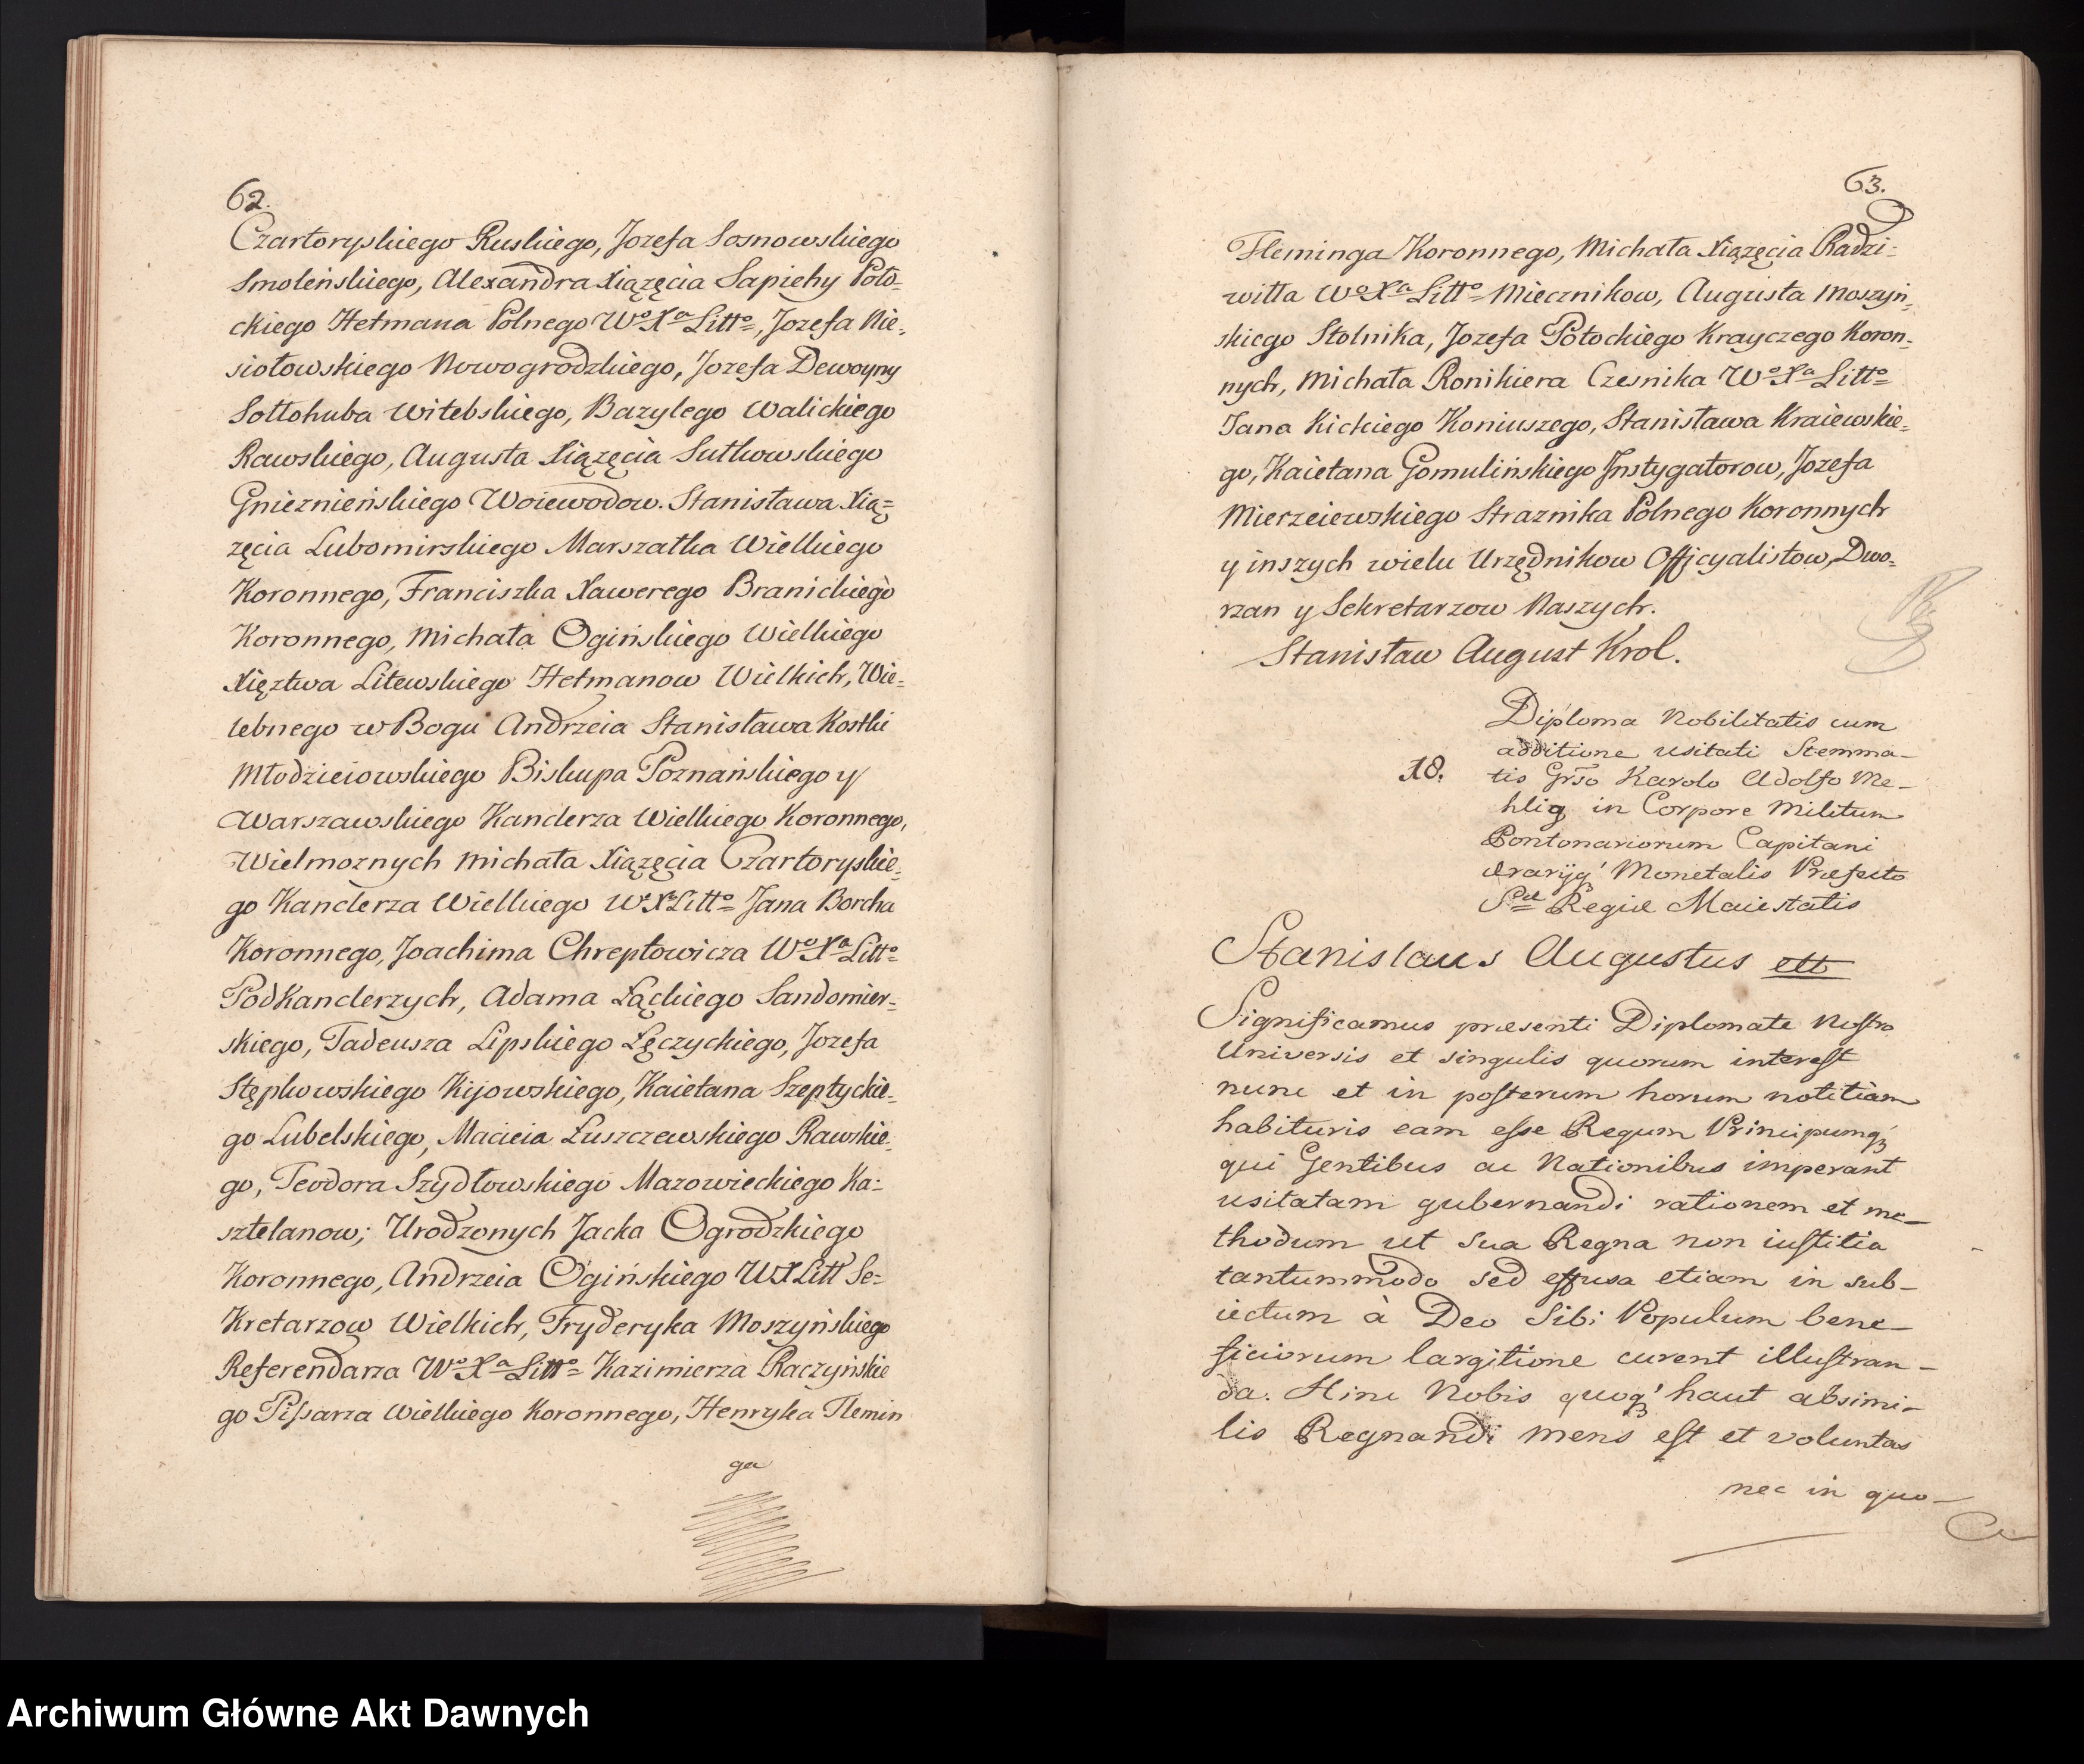 62.
Czartoryskiego Ruskiego, Jozefa Sosnowskiego
Smoleńskiego, Alexandra Xiązęcia Sapiehy Poło-
ckiego Hetmana Polnego Wo Xa Litto, Jozefa Nie-
siołowskiego Nowogrodzkiego, Jozefa Dewoyny
Sołłohuba Witebskiego, Bazylego Walickiego
Rawskiego, Augusta Xiązęcia Sułkowskiego
Gnieznieńskiego Woiewodow. Stanisława Xią=
zęcia Lubomirskiego Marszałka Wielkiego
Koronnego, Franciszka Xawerego Branickiego
Koronnego, Michała Ogińskiego Wielkiego
Xięztwa Litewskiego Hetmanow Wielkich, Wie-
lebnego w Bogu Andrzeia Stanisława Kostki
Młodzieiowskiego Biskupa Poznańskiego y
Warszawskiego Kanclerza Wielkiego Koronnego,
Wielmoznych Michała Xiązęcia Czartoryskie-
go Kanclerza Wielkiego W.X.Litto Jana Borcha
Koronnego, Joachima Chreptowicza Wo Xa Litto
PodKanclerzych, Adama Łąckiego Sandomier-
skiego, Tadeusza Lipskiego Łęczyckiego, Jozefa
Stępkowskiego Kijowskiego, Kaietana Szeptyckie-
go Lubelskiego, Macieia Łuszczewskiego Rawskie-
go, Teodora Szydłowskiego Mazowieckiego Ka-
sztelanow; Urodzonych Jacka Ogrodzkiego
Koronnego, Andrzeia Ogińskiego WXLitt Se-
Kretarzow Wielkich, Fryderyka Moszyńskiego
Referendarza Wo Xa Litto Kazimierza Raczyńskie
go Pisarza Wielkiego Koronnego, Henryka Flemin
ga
63.
Fleminga Koronnego, Michała Xiązęcia Radzi-
wiłła Wo Xa Litto Miecznikow, Augusta Moszyń-
skiego Stolnika, Jozefa Potockiego Krayczego Koron-
nych, Michała Ronikiera Czesnika Wo Xa Litto
Jana Kickiego Koniuszego, Stanisława Kraiewskie-
go, Kaietana Gomulińskiego Instygatorow, Jozefa
Mierzeiewskiego Straznika Polnego Koronnych
y inszych wielu Urzędnikow Officyalistow, Dwo-
rzan y Sekretarzow Naszych.
Stanisław August Krol.
Diploma Nobilitatis cum
additione usitati Stemma-
18. tis Grso Karolo Adolfo Me-
hlig in Corpore Militum
Pontonariorum Capitani
Monetalis Præfecto
Regiæ Maiestatis
Stanislaus Augustus ett
Significamus præsenti Diplomate Nostro
Universis et singulis quorum interest
nunc et in posterum horum notitiam
habituris eam esse Regum Principumq
qui Gentibus ac Nationibus imperant
usitatam gubernandi rationem et me-
thodum ut sua Regna non iustitia
tantummodo sed effusa etiam in sub-
iectum à Deo Sibi Populum bene-
ficiorum largitione curent illustran-
da. Hinc Nobis quoq haut absimi-
lis Regnandi mens est et voluntas
nec in quo-
Archiwum Główne Akt Dawnych